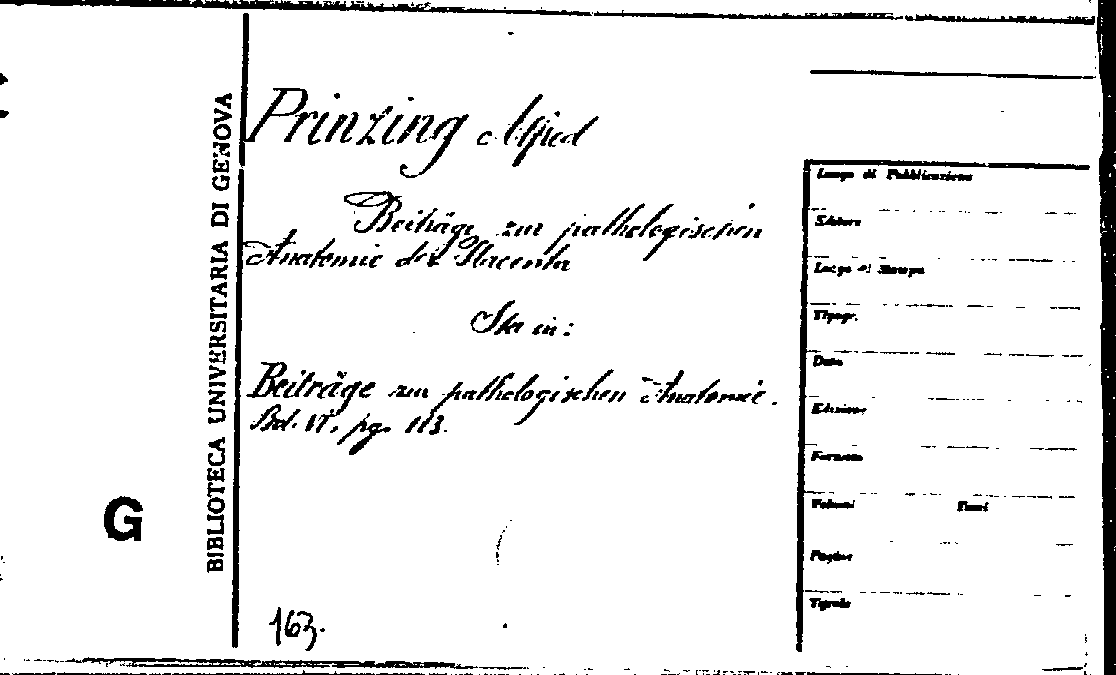 BIBLIOTECA UNIVERSITARIA DI GENOVA
G
Prinzing Alfred
Beiträge zur pathologischen
Anatomie der Placenta
Sta in:
Beiträge zur pathologischen Anatomie.
Bd. VI, pg. 113.
163.
Luogo di Pubblicazione
Editore
Luogo di Stampa
Tipogr.
Data
Edizione
Formato
Volumi Tomi
Pagine
Tavole